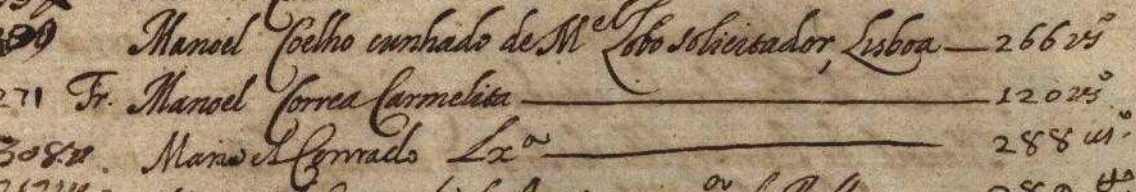 Manoel Coelho cunhado de M.el Lobo solicitador, Lisboa — 266 vs.o
271 Fr. Manoel Correa Carmelita — 120 vs.o
308. Manoel Conrado Lx.a — 288